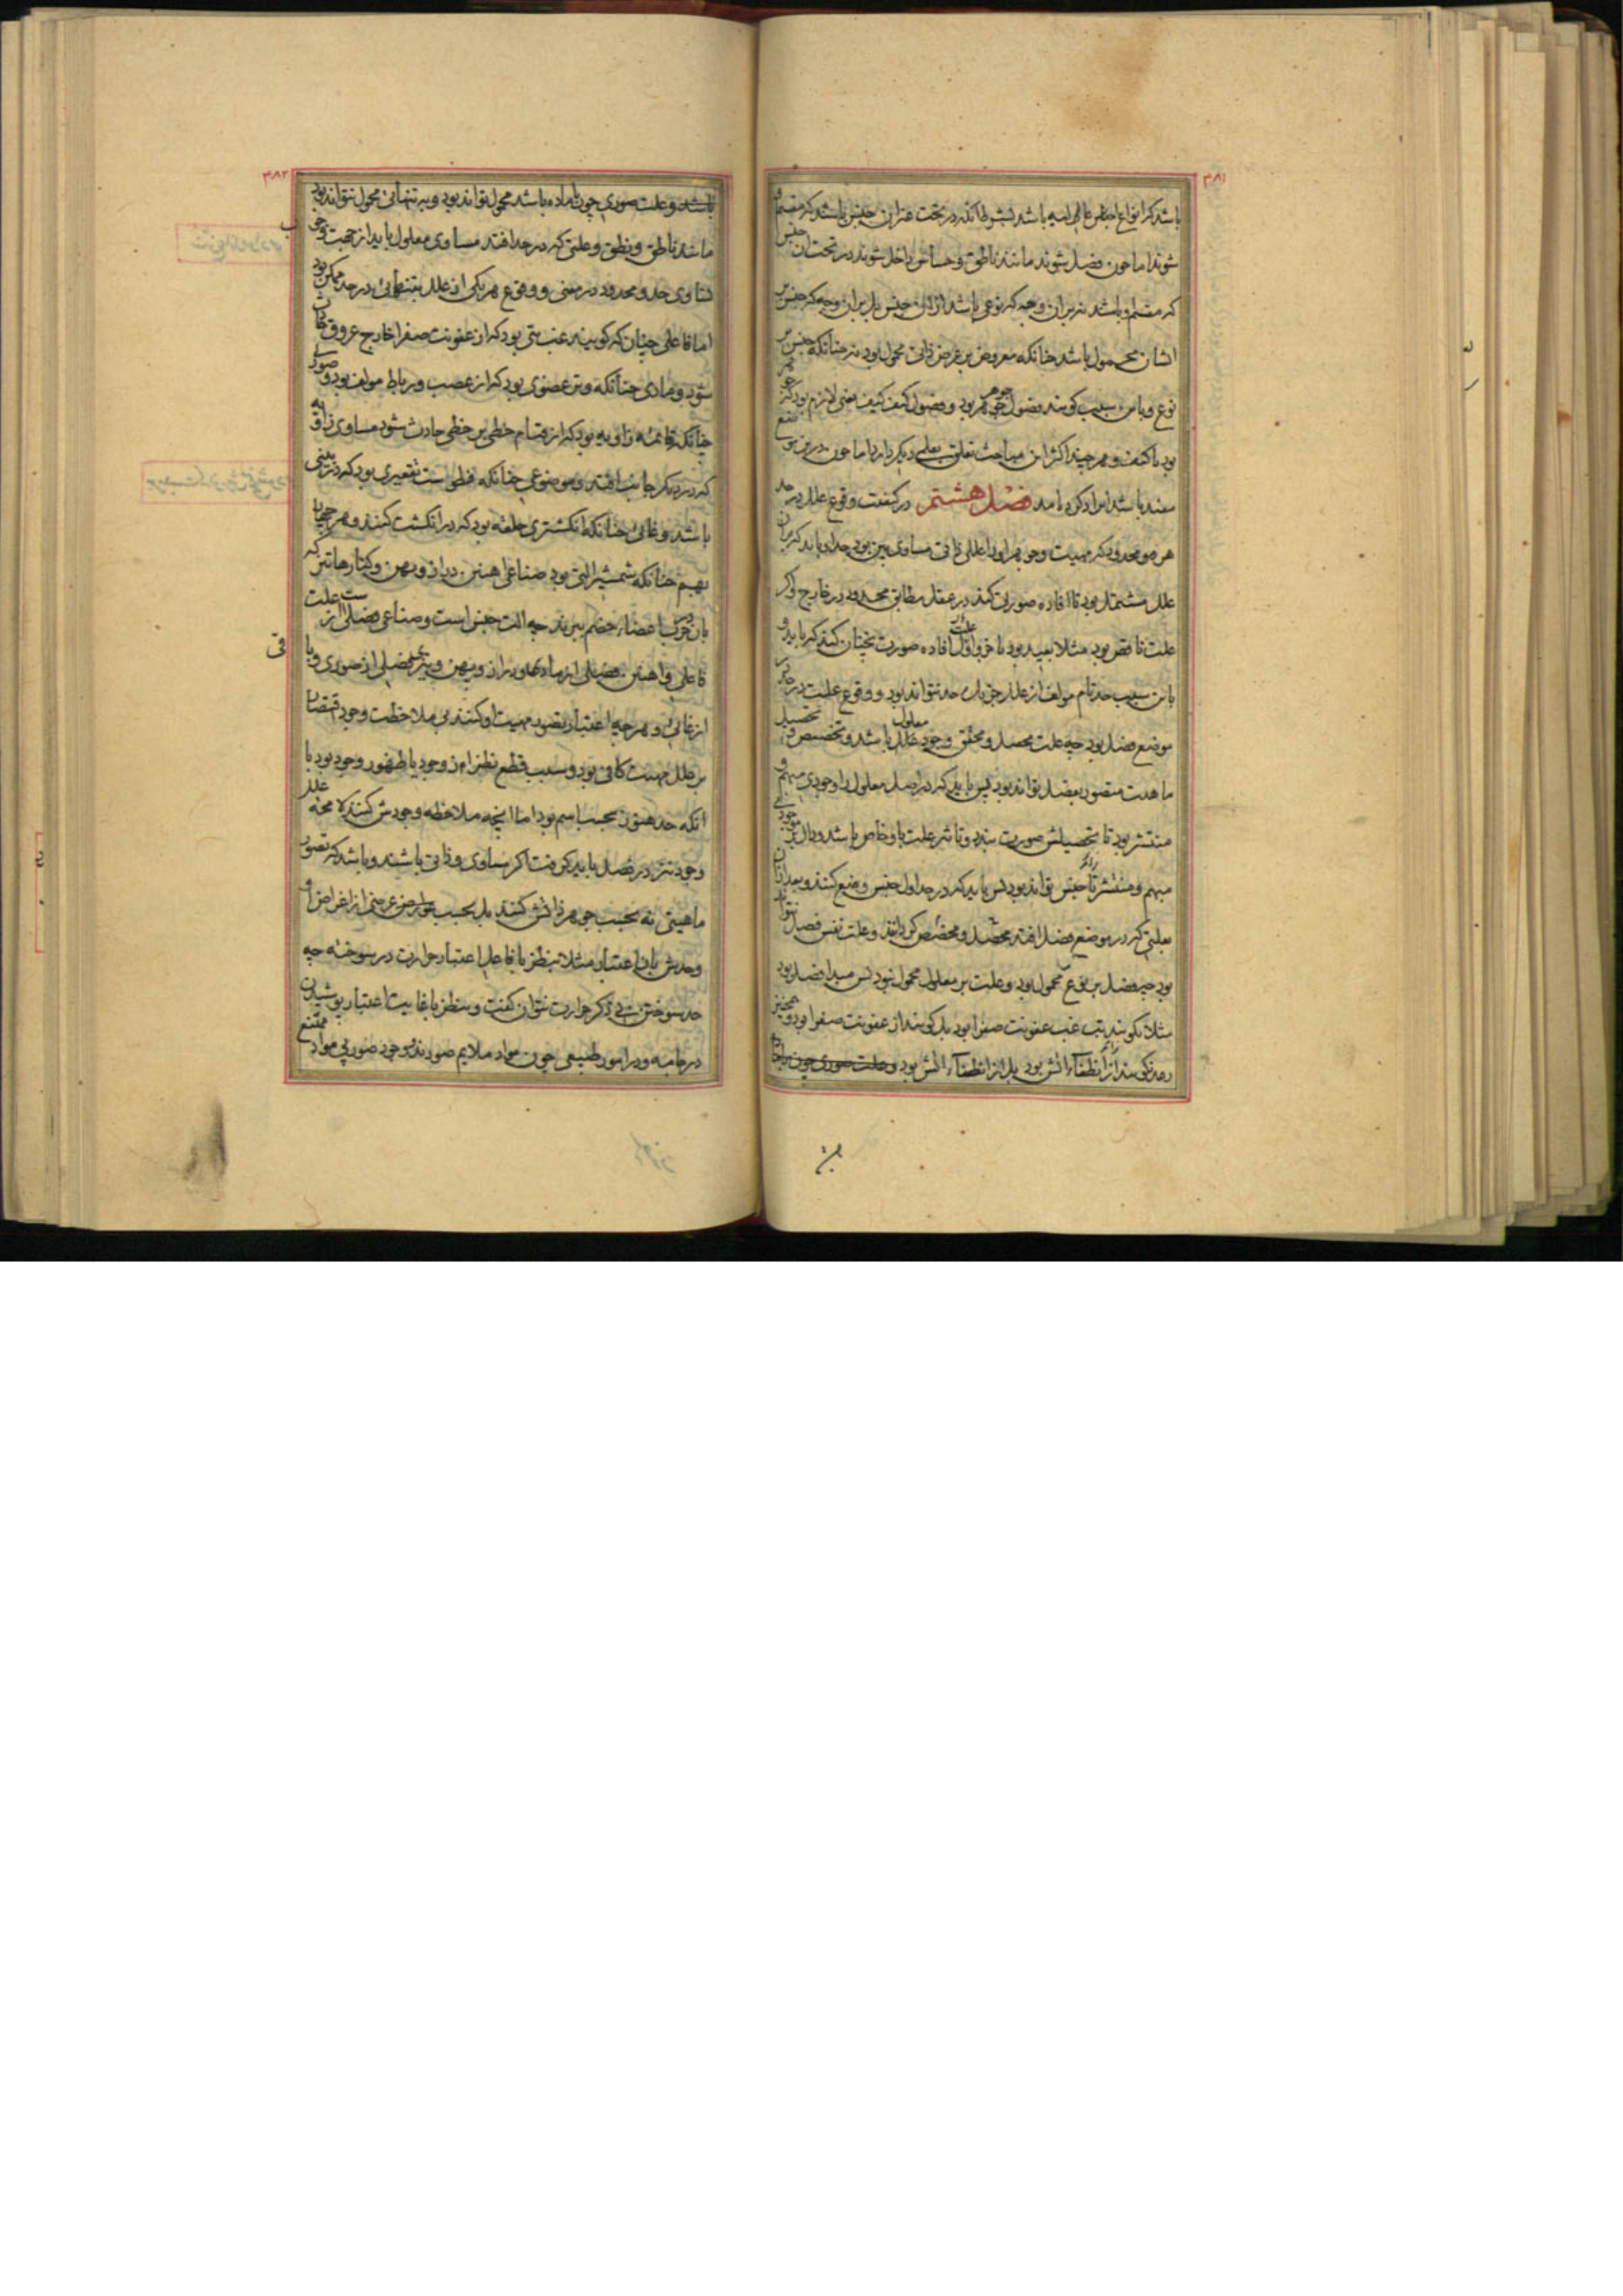 ۳۸۱
باشد که انواع اجناس عالیه باشد بشرط آنکه در تحت عیران جنس باشد که مقسم او
شوند اما چون فصل شوند مانند ناطق و حساس داخل شوند در تحت ان جنس
که مقسم او باشد نه بران وجه که نوعی باشد ازان جنس بل بران وجه که جنس بر
ایشان محمول باشد چنانکه معروض بر عرض ذاتی محمول بود نه چنانکه جنس بر
نوع و باین سبب گویند فصول جوهر جوهر بود و فصول کیف کیف یعنی لازم بود که جوهر
بود یا کیف و هر چند اکثر این مباحث تعلق بعلمی دیگر دارد اما چون درین موضع
مفید باشد ایراد کرده امد فصل هشتم در کیفیت وقوع علل در حد
هر محدود که مهیت وجود او را عللی ذاتی مساوی بین بود حد او باید که بران
علل مشتمل بود تا افاده صورتی کند در عقل مطابق محدود در خارج و اگر
علت ناقص بود مثلا بعید بود یا جزو علت افاده صورت نچنان کند که باید و
باین سبب حد تام مولف از علل جز یک حد نتواند بود و وقوع علت در حد در
موضع فصل بود چه علت محصل و محقق وجود معلول باشد و تخصیص و تحصیل
ماهیت متصور بفصل تواند بود پس باید که در اصل معلول را وجودی مبهم و
منتشر بود تا تحصیلش صورت بندد و تاثیر علت باو خاص باشد و دال بر موجودی
مبهم و منتشر ناچار جنس تواند بود پس باید که در حد اول جنس وضع کنند و بعد ازان
بعلتی که در موضع فصل افتد محصل و مخصص گردانند و علت نفس فصل نتواند
بود چه فصل بر نوع محمول بود و علت بر معلول محمول نبود پس مبدا فصل بود
مثلا نگویند تب غب عفونت صفرا بود بل گویند از عفونت صفرا بود و همچنین
رعد نگویند انطفاء اتش بود بل از انطفاء اتش بود و علت صوری چون با ماده
۳۸۲
باشد و علت صوری چون با ماده باشد محمول تواند بود و به تنهائی محمول نتواند بود
مانند ناطق و نطق و علتی که در حد افتد مساوی معلول باید از جهت وجوب
تساوی حد و محدود در معنی و وقوع هر یکی از علل بتنهائی در حد ممکن بود
اما فاعلی چنان که گویند غب تبی بود که از عفونت صفرا خارج عروق حادث
شود و مادی چنانکه وتر عضوی بود که از عصب و رباط مولف بود و صوری
چنانکه قائمه زاویه بود که از قیام خطی بر خطی حادث شود مساوی زاویه
که در دیگر جانب افتد و موضوعی چنانکه فطوست تقعیری بود که در بینی
باشد و غائی چنانکه انگشتری حلقه بود که در انگشت کنند و هر چهار
بهم چنانکه شمشیر التی بود صناعی اهنین دراز و پهن و کنارها تیز که
بان در حرب اعضاء خصم ببرند چه الت جنس است و صناعی فصلی است از علت
فاعلی و اهنین فصلی از مادی و دراز و پهن و تیز فصلی از صوری و باقی
از غائی و هر چه اعتبار تصور مهیت او کنند بی ملاحظت وجود اقتصار
بر علل مهیت کافی بود و سبب قطع نظر ازوجود یا ظهور وجود بود یا
انکه حد هنوز بحسب اسم بود اما انچه ملاحظه وجودش کنند لا محاله علل
وجود نیز در فصل باید گرفت اگر مساوی و ذاتی باشند و باشد که تصور
ماهیتی نه بحسب جوهر ذاتش کنند بل بحسب عوارض عرضی از اعراض او
وحدش بان اعتبار مثلا بنظر با فاعل اعتبار حرارت در سوخته چه
حد سوختن بی ذکر حرارت نتوان گفت و بنظر با غایت اعتبار پوشیدن
در جامه و در امور طبیعی چون مواد ملایم صورند وجود صور بی مواد ممتنع